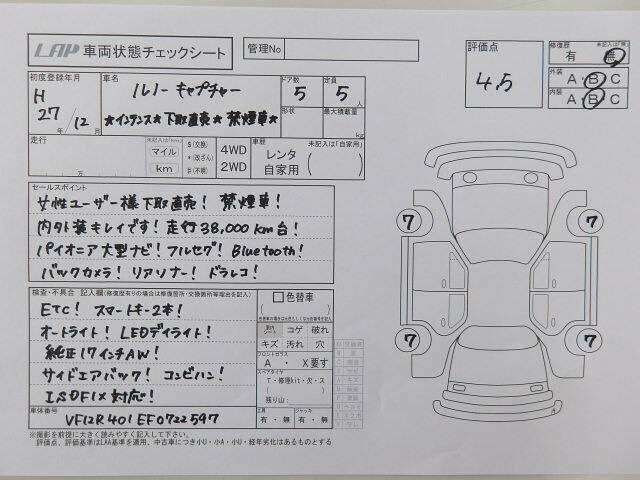 LAP 車両状態チェックシート
管理No
評価点
4.5
修復歴 未記入は「無」
有 無
外装 A・B・C
内装 A・B・C
初度登録年月
H
27年/12月
車名
ルノー キャプチャー
★インテンス★下取直売★禁煙車★
ドア数
5
定員
5人
形状
最大積載量
kg
走行 未記入は「km」
マイル
km
万
$(交換)
*(改ざん)
#(不明)
4WD
2WD
車歴 未記入は「自家用」
レンタ
自家用 ( )
セールスポイント
女性ユーザー様下取直売! 禁煙車!
内外装キレイです! 走行38,000km台!
パイオニア大型ナビ! フルセグ! Bluetooth!
バックカメラ! リアソナー! ドラレコ!
検査・不具合 記入欄(修復歴有りの場合は修復箇所・交換箇所等理由を記入)
ETC! スマートキー2本!
オートライト! LEDデイライト!
純正17インチAW!
サイドエアバック! コンビハン!
ISOFIX対応!
色替車
( )
室内 コゲ 破れ
キズ 汚れ 穴
フロントガラス
A ・ X要す
スペアタイヤ
T・修理kit・欠・ス
残り山:
工具
有・無
ジャッキ
有・無
車体番号
VF12R401EF0722597
7
7
7
7
※撮影を前提に大きく読みやすく記入して下さい。
評価点、評価基準はLAA基準を適用、中古車につき小U・小A・小U・経年劣化はあるものとする